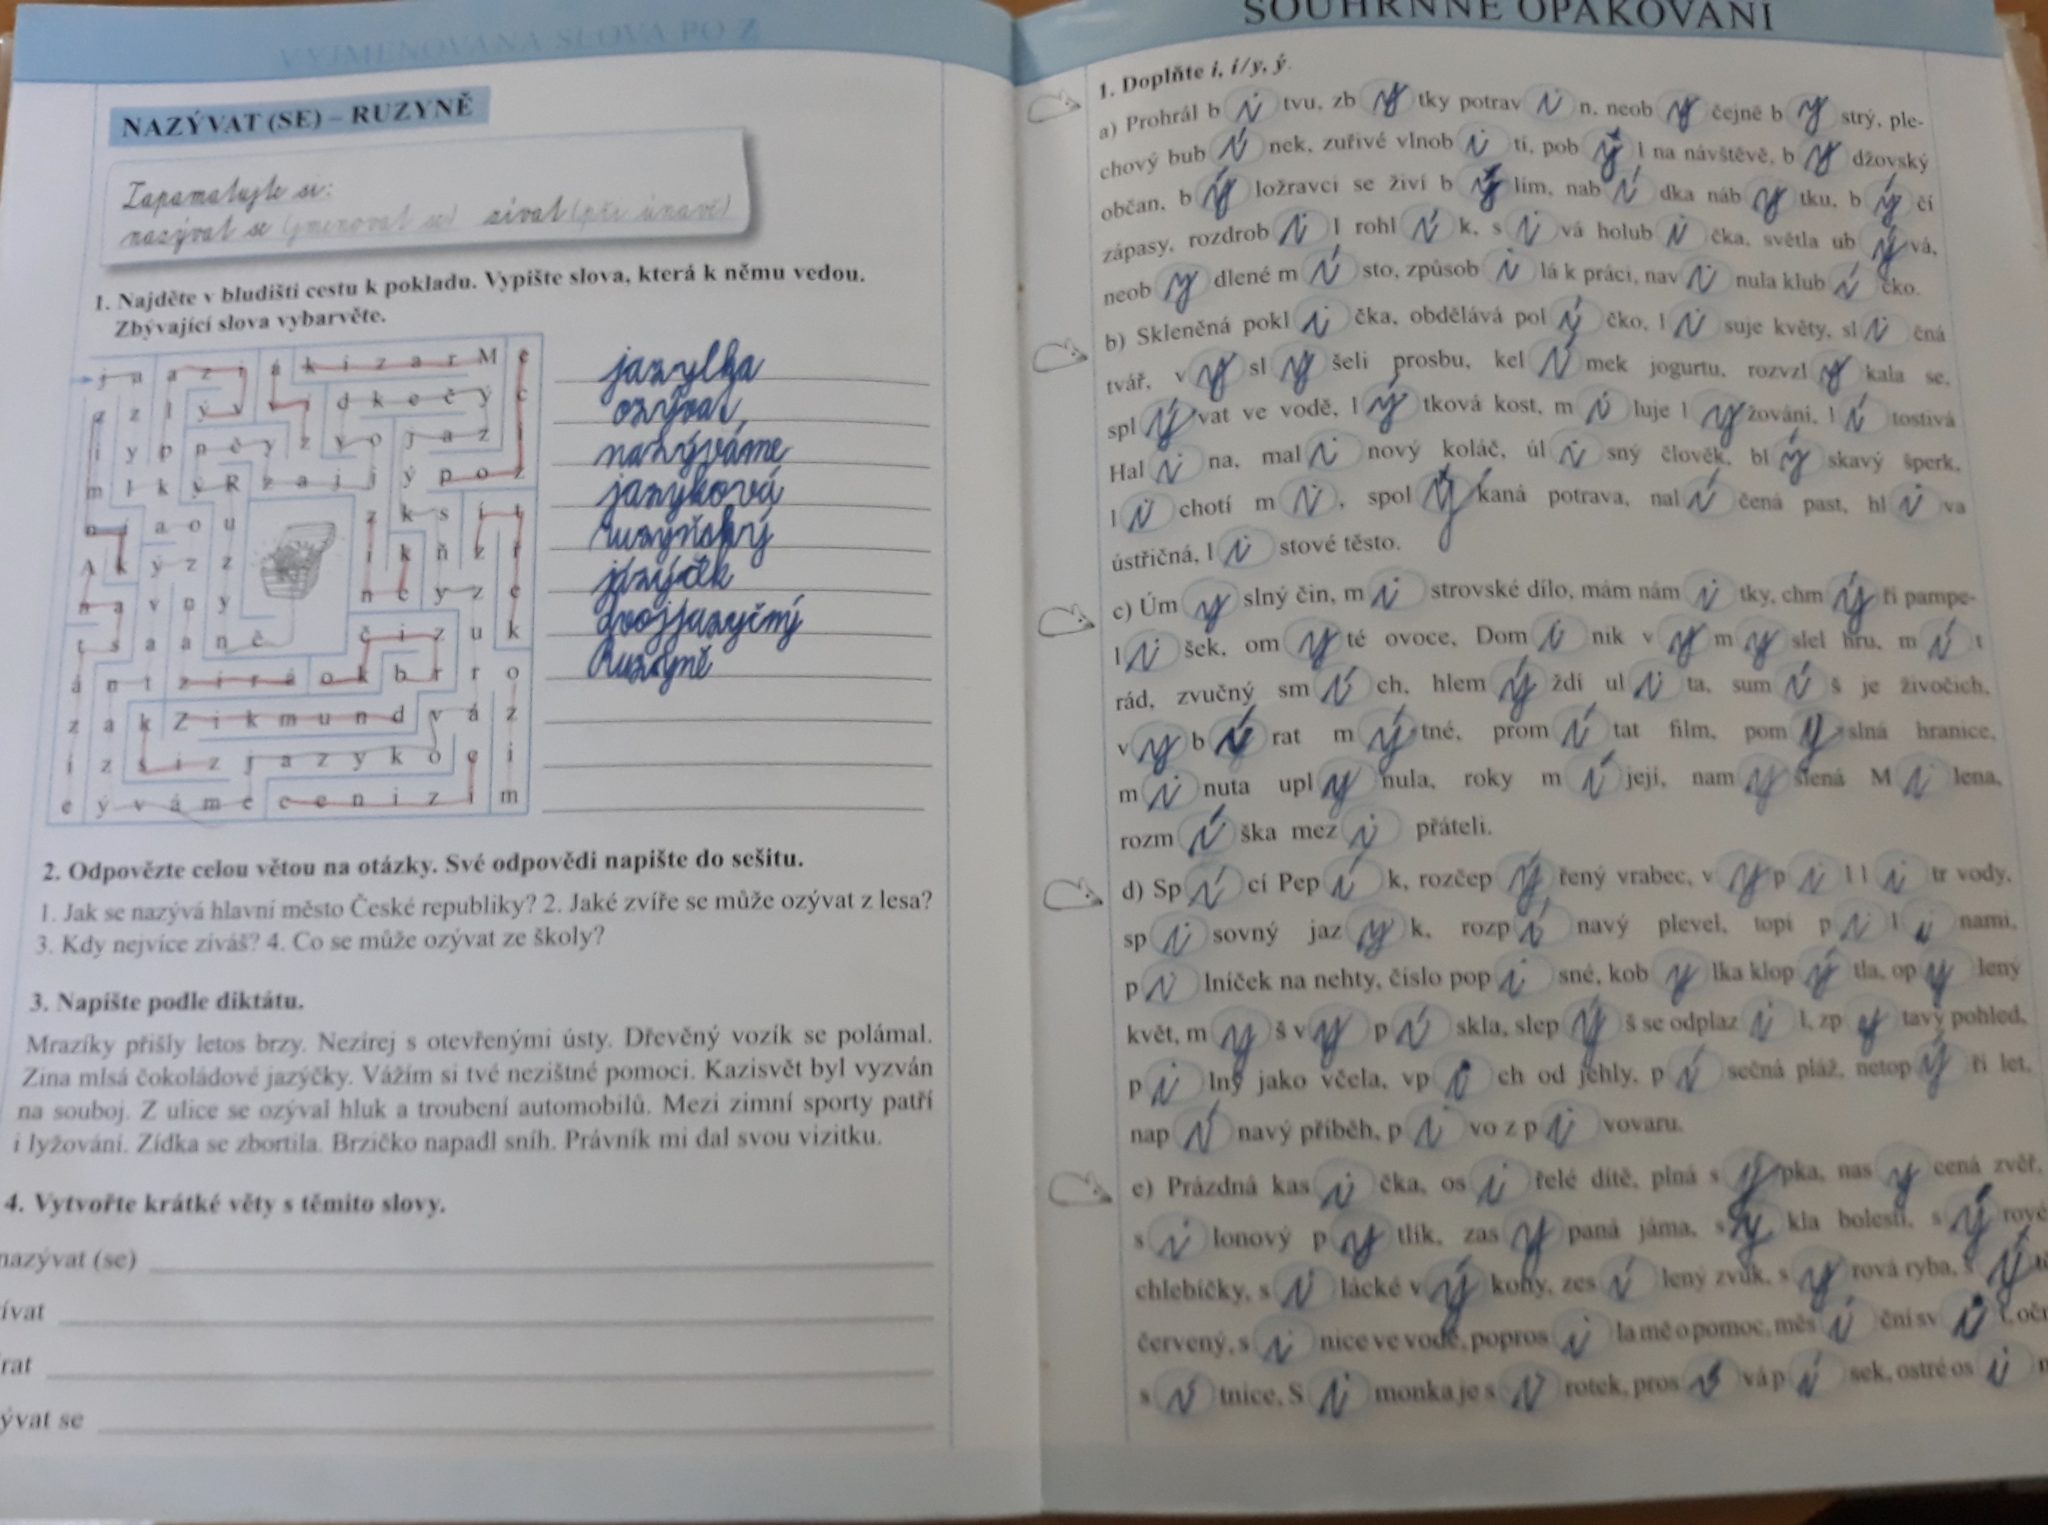 VYJMENOVANÁ SLOVA PO Z
NAZÝVAT (SE) – RUZYNĚ
Zapamatujte si:
nazývat se (jmenovat se) zívat (při únavě)
1. Najděte v bludišti cestu k pokladu. Vypište slova, která k němu vedou.
Zbývající slova vybarvěte.
jazylka
ozýval,
nazýváme
jazyková
ruzyňský
jazýček
dvojjazyčný
Ruzyně
2. Odpovězte celou větou na otázky. Své odpovědi napište do sešitu.
1. Jak se nazývá hlavní město České republiky? 2. Jaké zvíře se může ozývat z lesa?
3. Kdy nejvíce zíváš? 4. Co se může ozývat ze školy?
3. Napište podle diktátu.
Mrazíky přišly letos brzy. Nezírej s otevřenými ústy. Dřevěný vozík se polámal.
Zina mlsá čokoládové jazýčky. Vážím si tvé nezištné pomoci. Kazisvět byl vyzván
na souboj. Z ulice se ozýval hluk a troubení automobilů. Mezi zimní sporty patří
i lyžování. Zídka se zbortila. Brzičko napadl sníh. Právník mi dal svou vizitku.
4. Vytvořte krátké věty s těmito slovy.
nazývat (se)
ívat
rat
ývat se
SOUHRNNÉ OPAKOVÁNÍ
1. Doplňte i, í/y, ý.
a) Prohrál b i tvu, zb y tky potrav i n, neob y čejně b y strý, ple-
chový bub í nek, zuřivé vlnob i tí, pob ý l na návštěvě, b y džovský
občan, b ý ložravci se živí b ý lím, nab í dka náb y tku, b ý čí
zápasy, rozdrob i l rohl í k, s i vá holub i čka, světla ub ý vá,
neob y dlené m í sto, způsob i lá k práci, nav i nula klub í čko.
b) Skleněná pokl i čka, obdělává pol í čko, l í suje květy, sl i čná
tvář, v y sl y šeli prosbu, kel í mek jogurtu, rozvzl y kala se,
spl ý vat ve vodě, l ý tková kost, m i luje l y žování, l í tostivá
Hal i na, mal i nový koláč, úl i sný člověk, bl ý skavý šperk,
l i chotí m i , spol ý kaná potrava, nal í čená past, hl i va
ústřičná, l i stové těsto.
c) Úm y slný čin, m i strovské dílo, mám nám i tky, chm ý ří pampe-
l i šek, om y té ovoce, Dom i nik v y m y slel hru, m í t
rád, zvučný sm í ch, hlem ý ždí ul i ta, sum í š je živočich,
v y b í rat m ý tné, prom í tat film, pom y slná hranice,
m i nuta upl y nula, roky m í její, nam y šlená M i lena,
rozm í ška mez i přáteli.
d) Sp í cí Pep í k, rozčep ý řený vrabec, v y p i l l i tr vody,
sp i sovný jaz y k, rozp í navý plevel, topí p i l i nami,
p i lníček na nehty, číslo pop i sné, kob y lka klop ý tla, op y lený
květ, m y š v y p í skla, slep ý š se odplaz i l, zp y tavý pohled,
p i lný jako včela, vp i ch od jehly, p í sečná pláž, netop ý ří let,
nap í navý příběh, p i vo z p i vovaru.
e) Prázdná kas i čka, os i řelé dítě, plná s ý pka, nas y cená zvěř,
s i lonový p y tlík, zas y paná jáma, s y kla bolestí, s ý rové
chlebíčky, s i lácké v ý kony, zes í lený zvuk, s y rová ryba, s í
červený, s i nice ve vodě, popros i la mě o pomoc, měs í ční sv i t, oči
s í tnice, S i monka je s i rotek, pros í vá p í sek, ostré os i n